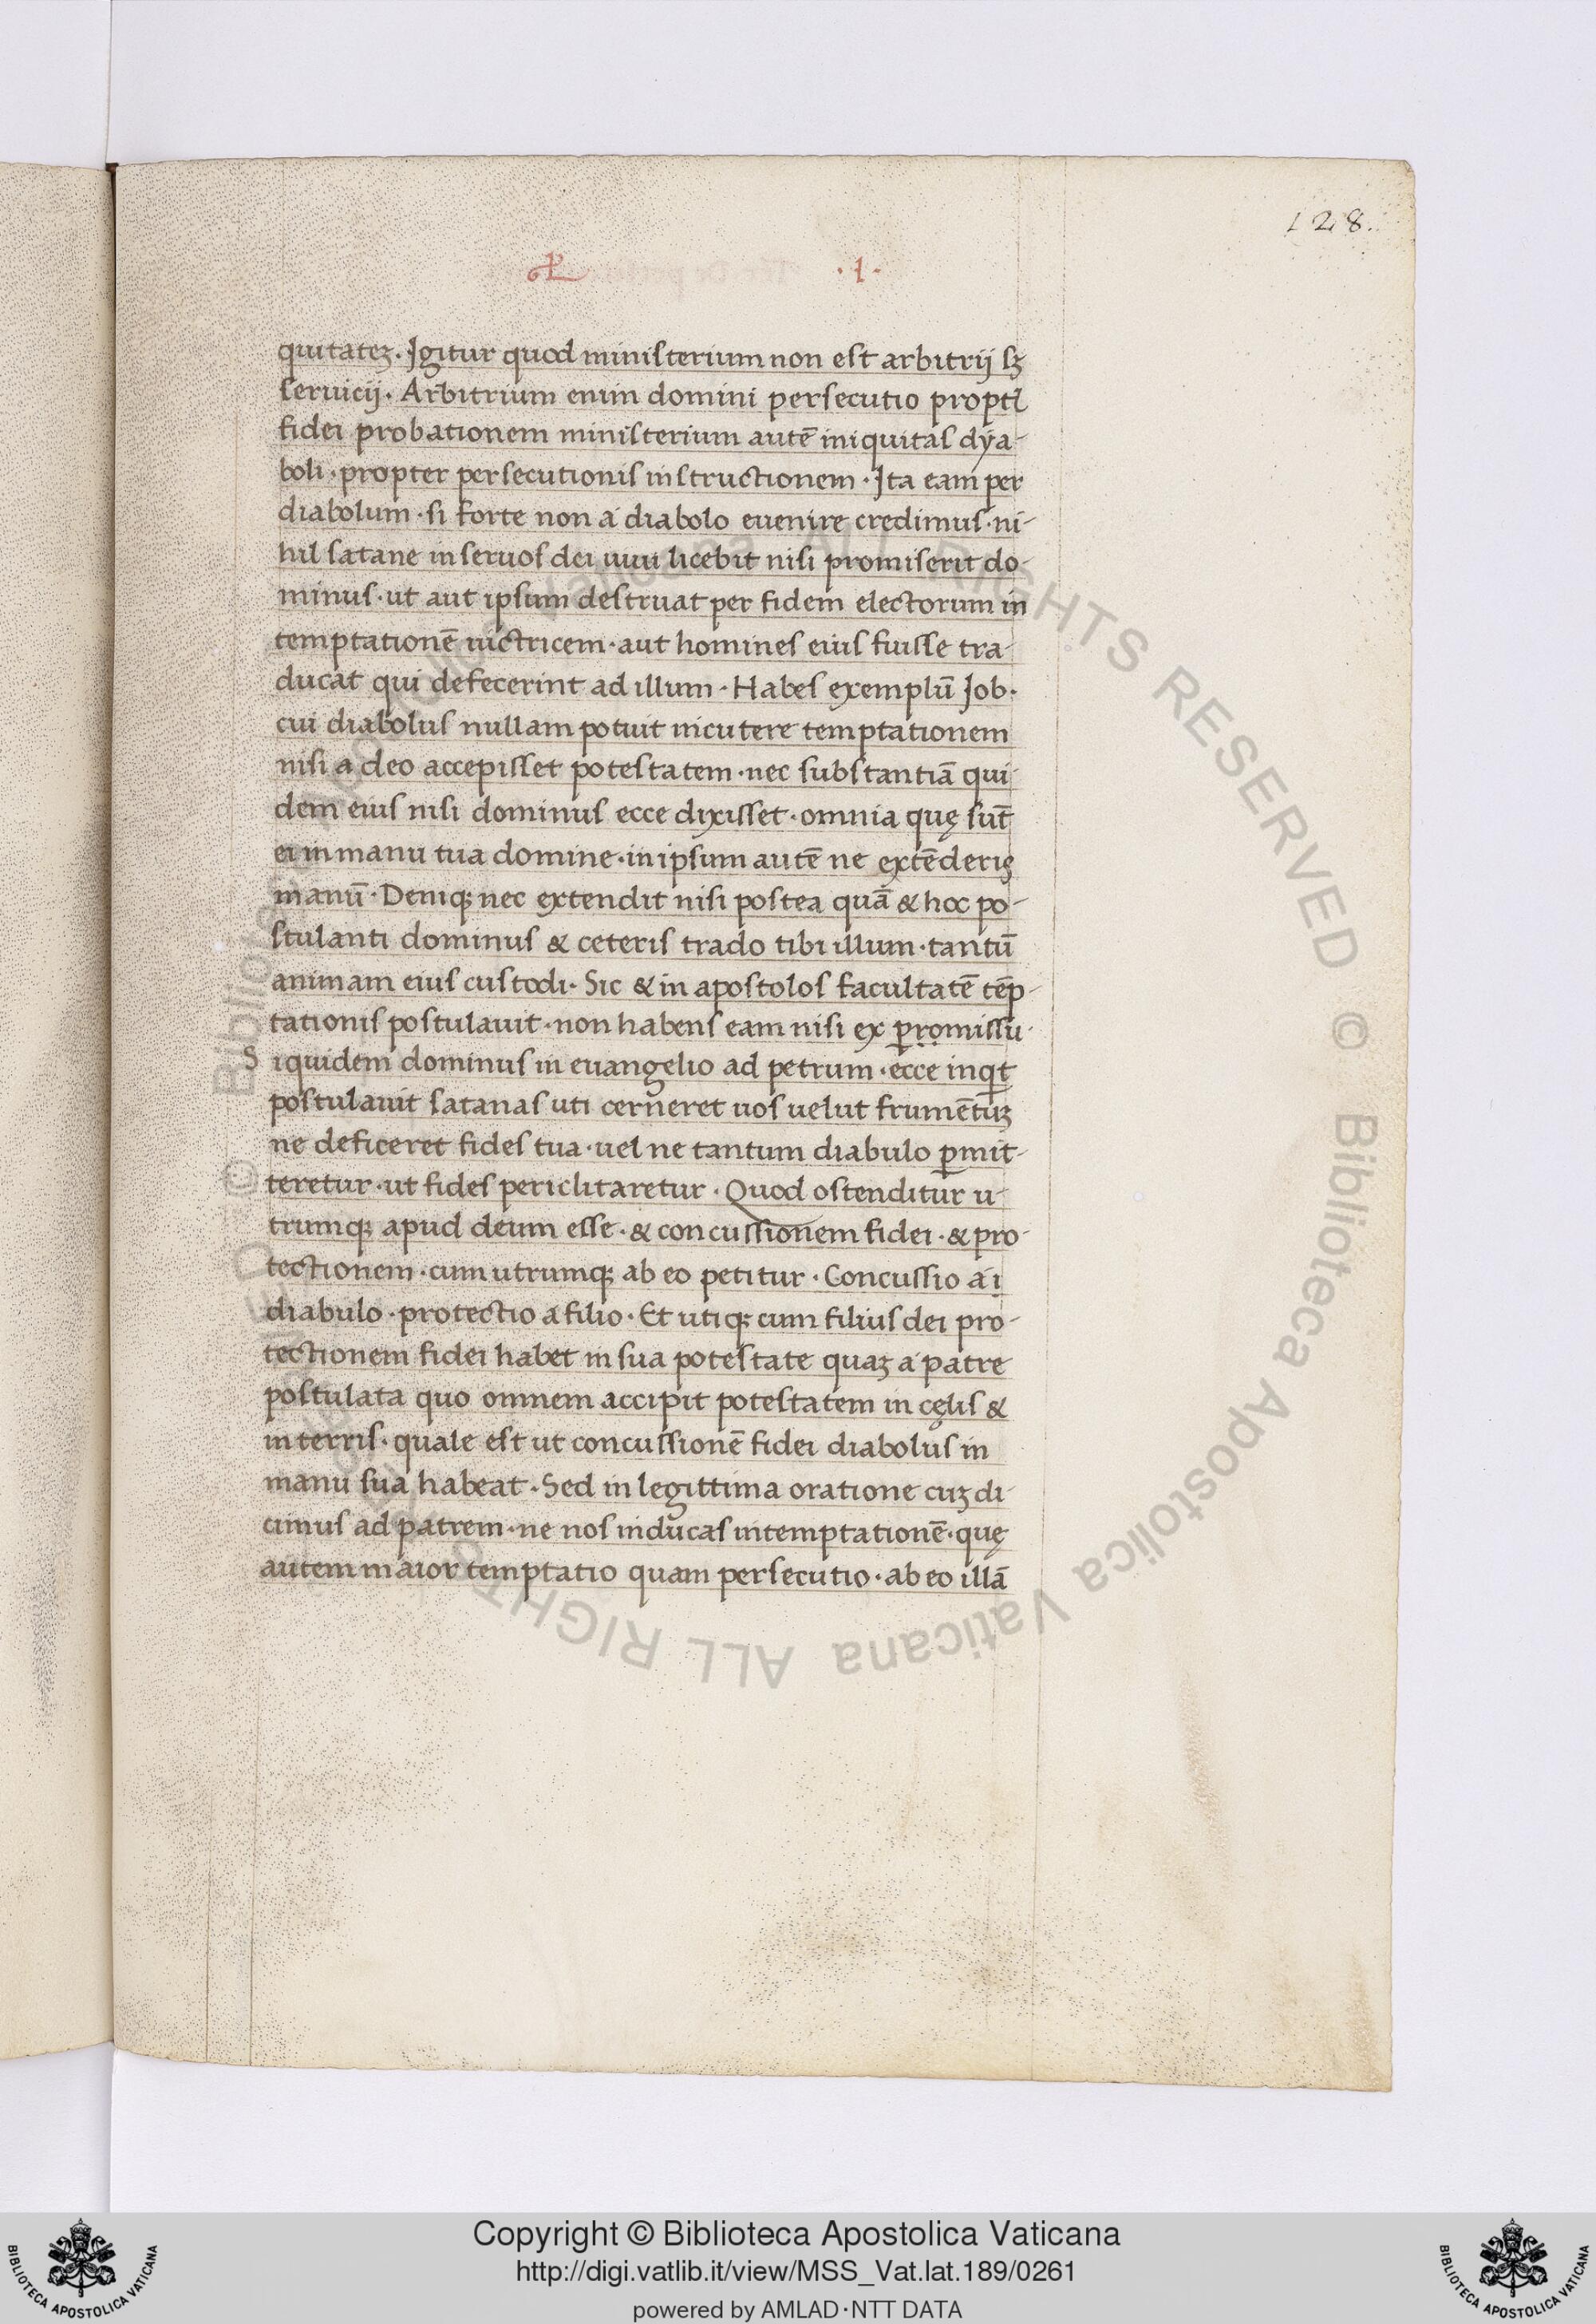 128.
·1·
quitateꝫ. Igitur quod ministerium non est arbitrij sꝫ
seruicij. Arbitrium enim domini persecutio propt̄
fidei probationem ministerium autē iniquitas dya-
boli · propter persecutionis instructionem · Ita eam per
diabolum · si forte non a diabolo euenire credimus · ni-
hil satane in seruos dei uiui licebit nisi promiserit do-
minus · ut aut ipsum destruat per fidem electorum in
temptationē uictricem · aut homines eius fuisse tra-
ducat qui defecerint ad illum · Habes exemplū Job ·
cui diabolus nullam potuit incutere temptationem
nisi a deo accepisset potestatem · nec substantiā qui-
dem eius nisi dominus ecce dixisset · omnia quę sūt
ei in manu tua domine · in ipsum autē ne extēderis
manū · Deniqꝫ nec extendit nisi postea quā & hoc po-
stulanti dominus & ceteris trado tibi illum · tantū
animam eius custodi · Sic & in apostolos facultatē tēp-
tationis postulauit · non habens eam nisi ex ꝑromissu ·
S iquidem dominus in euangelio ad petrum · ecce inqt
postulauit satanas uti cerneret uos uelut frumētuꝫ
ne deficeret fides tua · uel ne tantum diabulo ꝑmit-
teretur · ut fides periclitaretur · Quod ostenditur u-
trumqꝫ apud deum esse · & concussionem fidei · & pro-
tectionem · cum utrumqꝫ ab eo petitur · Concussio a i
diabulo · protectio a filio · Et utiqꝫ cum filius dei pro-
tectionem fidei habet in sua potestate quaꝫ a patre
postulata quo omnem accipit potestatem in cęlis &
in terris · quale est ut concussionē fidei diabolus in
manu sua habeat · Sed in legittima oratione cuꝫ di-
cimus ad patrem · ne nos inducas in temptationē · quę
autem maior temptatio quam persecutio · ab eo illā
Copyright © Biblioteca Apostolica Vaticana
http://digi.vatlib.it/view/MSS_Vat.lat.189/0261
powered by AMLAD·NTT DATA